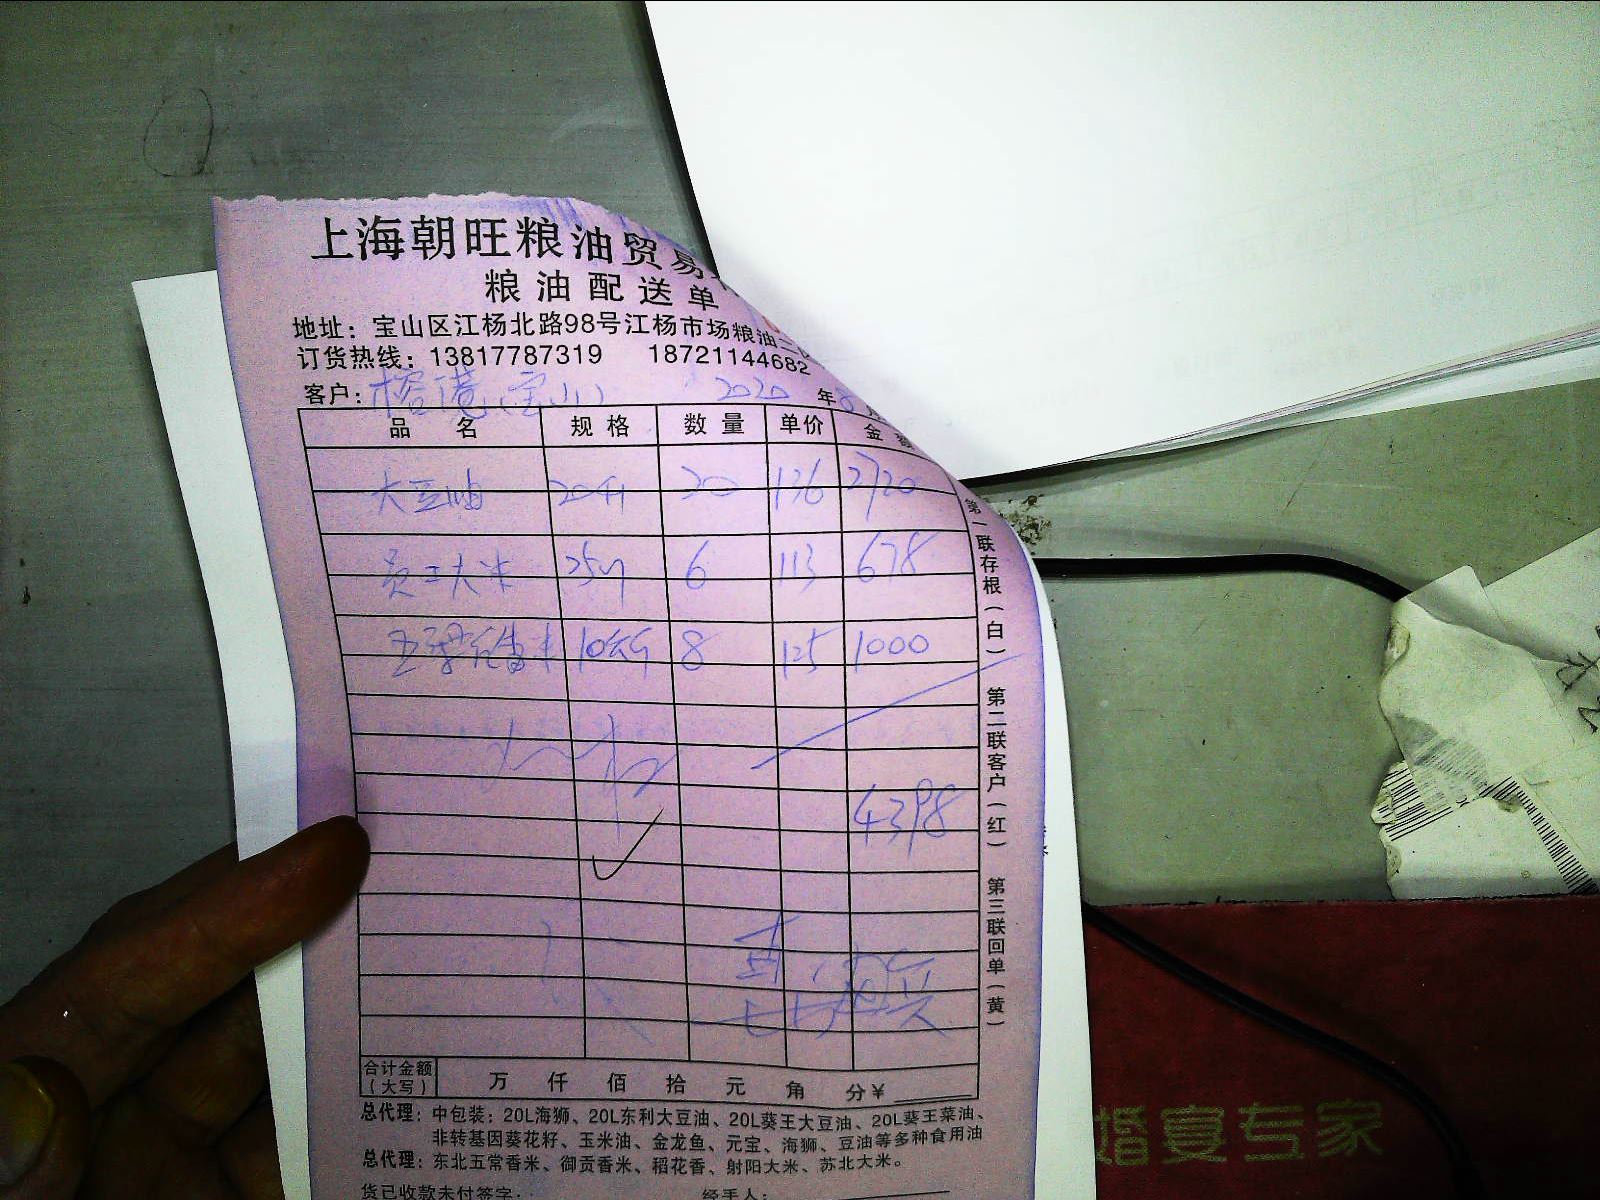 上海朝旺粮油贸易
粮油配送单
地址：宝山区江杨北路98号江杨市场粮油二
订货热线：13817787319 18721144682
客户：榕港（宝山） 2020 年
品名 规格 数量 单价 金额
大豆油 20升 20 136 2720
员工大米 25 6 113 678
10公斤 8 125 1000
4398
第一联存根（白） 第二联客户（红） 第三联回单（黄）
合计金额（大写） 万 仟 佰 拾 元 角 分￥
总代理：中包装：20L海狮、20L东利大豆油、20L葵王大豆油、20L葵王菜油、
非转基因葵花籽、玉米油、金龙鱼、元宝、海狮、豆油等多种食用油
总代理：东北五常香米、御贡香米、稻花香、射阳大米、苏北大米。
货已收款未付签字： 经手人：
婚宴专家